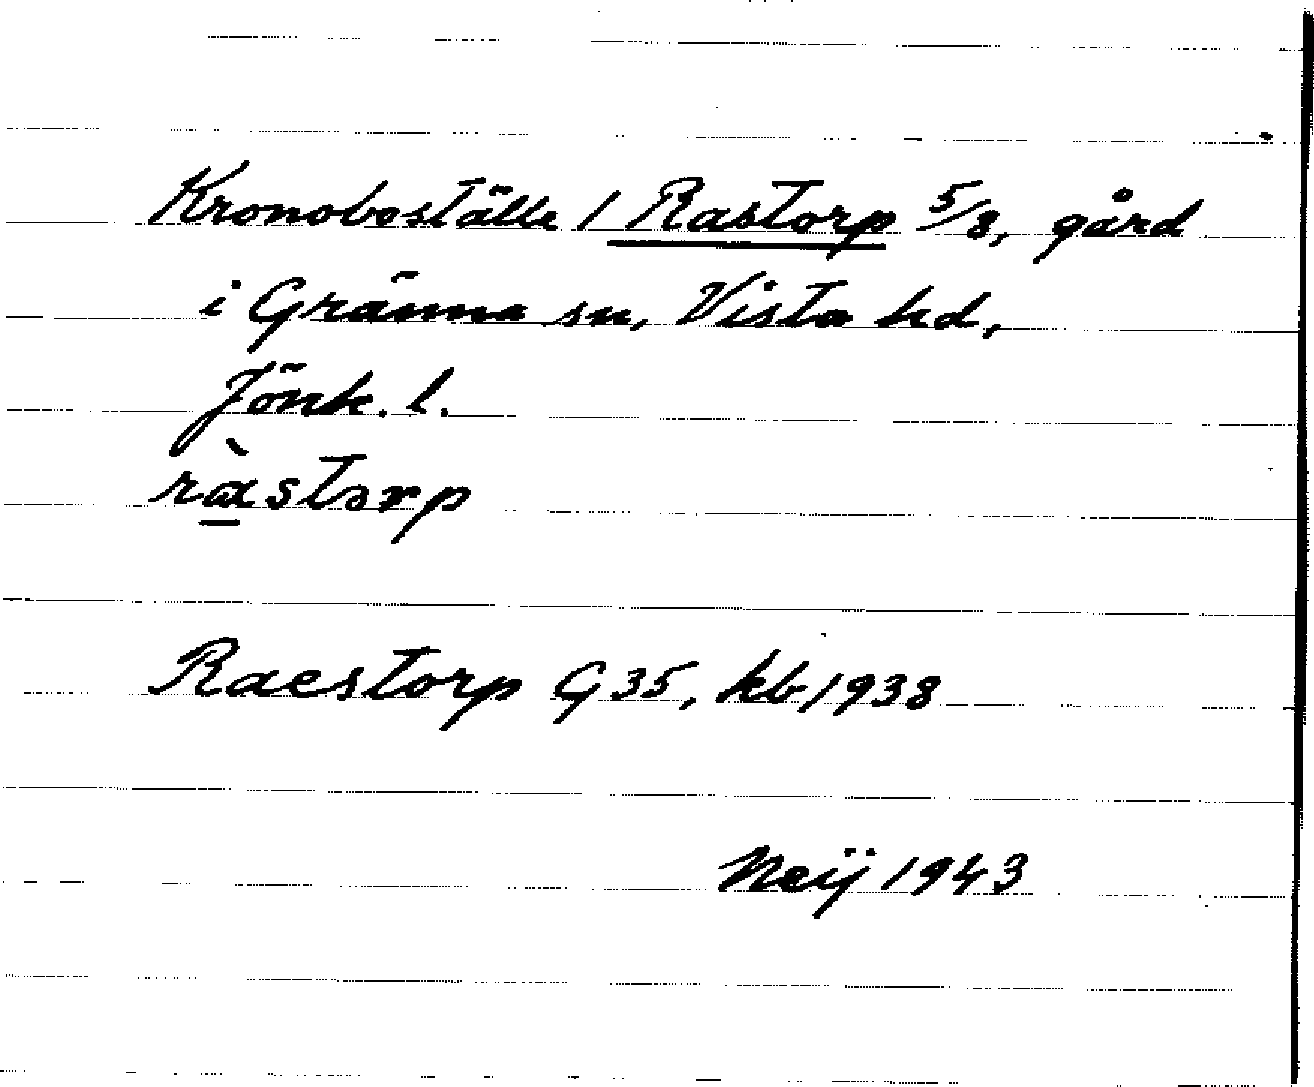 Kronoboställe / Rastorp 5/8, gård
i Gränna sn, Vista hd,
Jönk. l.
ràstorp
Raestorp G 35, kb/1938
Neij 1943